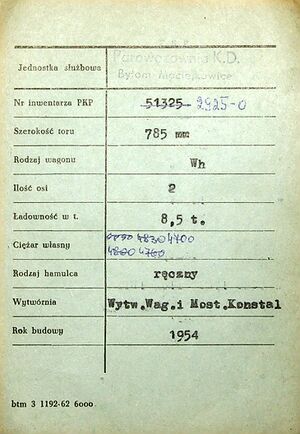 Parowozownia K.D.
Jednostka służbowa
Bytom Maciejkowice
Nr inwentarza PKP 51325 2925-0
Szerokość toru 785 mm
Rodzaj wagonu Wh
Ilość osi 2
Ładowność w t. 8,5 t.
Ciężar własny 4830 4700
4800 4760
Rodzaj hamulca ręczny
Wytwórnia Wytw.Wag.i Most.Konstal
Rok budowy 1954
btm 3 1192-62 6000